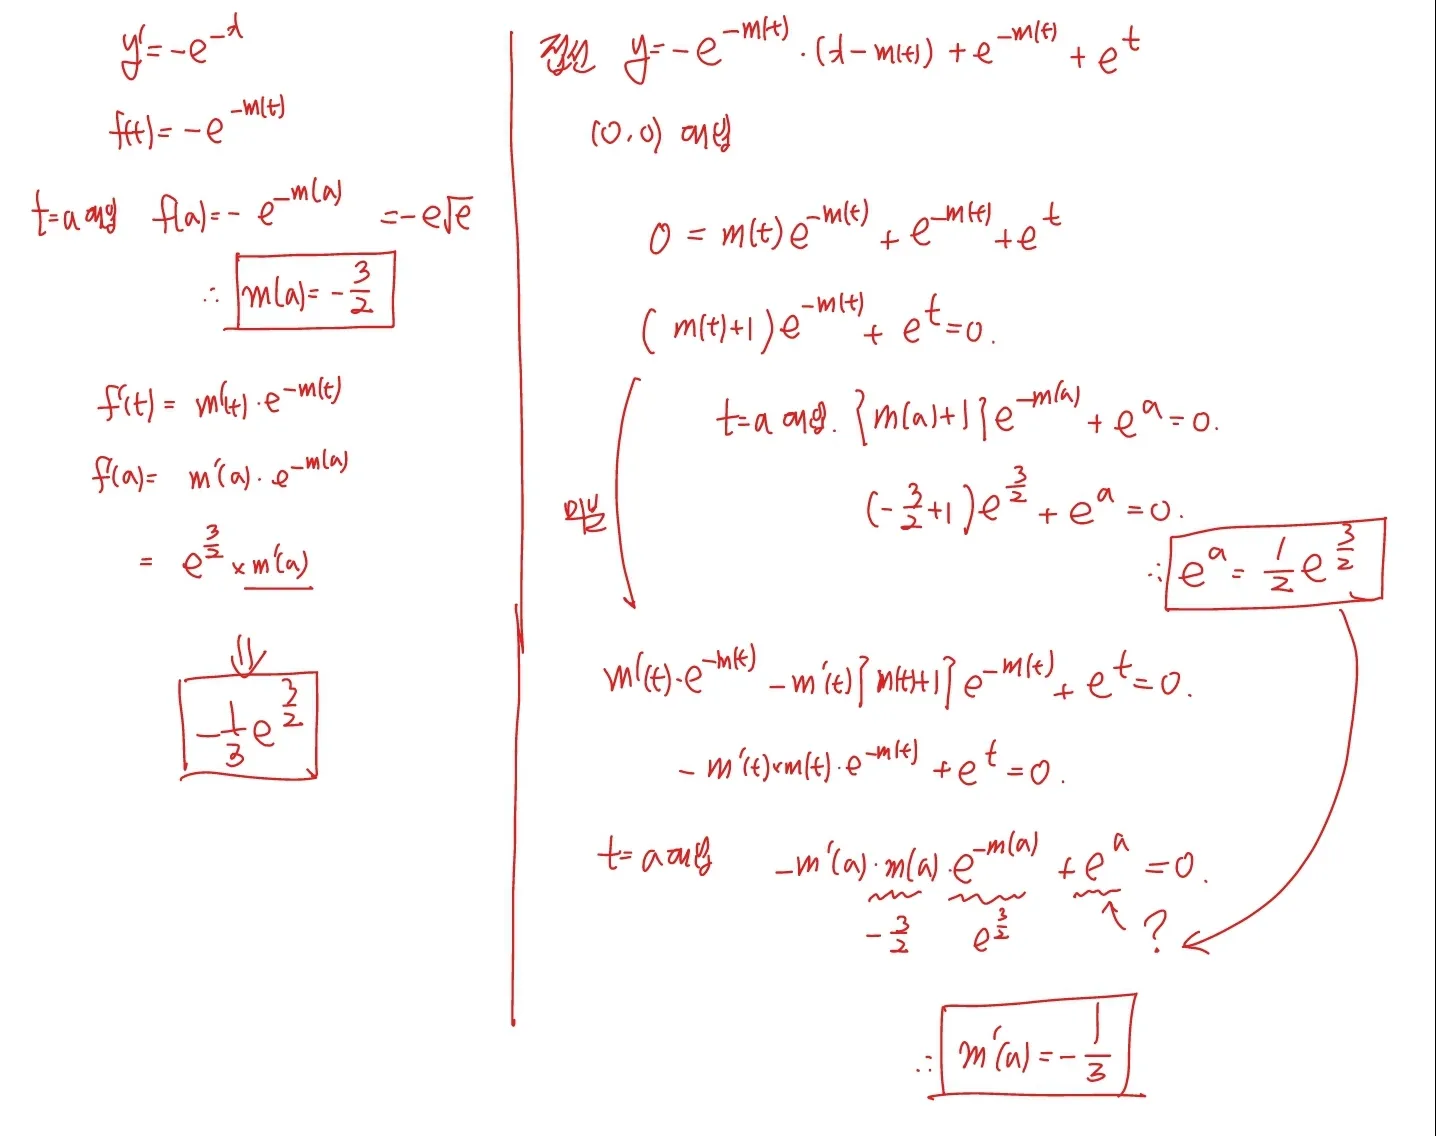 y' = -e^{-x}
f(t) = -e^{-m(t)}
t=a 대입 f(a) = -e^{-m(a)} = -e√e
∴ m(a) = -3/2
f'(t) = m'(t)·e^{-m(t)}
f'(a) = m'(a)·e^{-m(a)}
= e^{3/2} × m'(a)
⇓
-1/3 e^{3/2}
접선 y = -e^{-m(t)}·(x-m(t)) + e^{-m(t)} + e^t
(0,0) 대입
0 = m(t)e^{-m(t)} + e^{-m(t)} + e^t
(m(t)+1)e^{-m(t)} + e^t = 0.
t=a 대입. {m(a)+1}e^{-m(a)} + e^a = 0.
(-3/2+1)e^{3/2} + e^a = 0.
∴ e^a = 1/2 e^{3/2}
미분
m'(t)·e^{-m(t)} - m'(t){m(t)+1}e^{-m(t)} + e^t = 0.
-m'(t)×m(t)·e^{-m(t)} + e^t = 0.
t=a 대입 -m'(a)·m(a)·e^{-m(a)} + e^a = 0.
-3/2 e^{3/2} ?
∴ m'(a) = -1/3